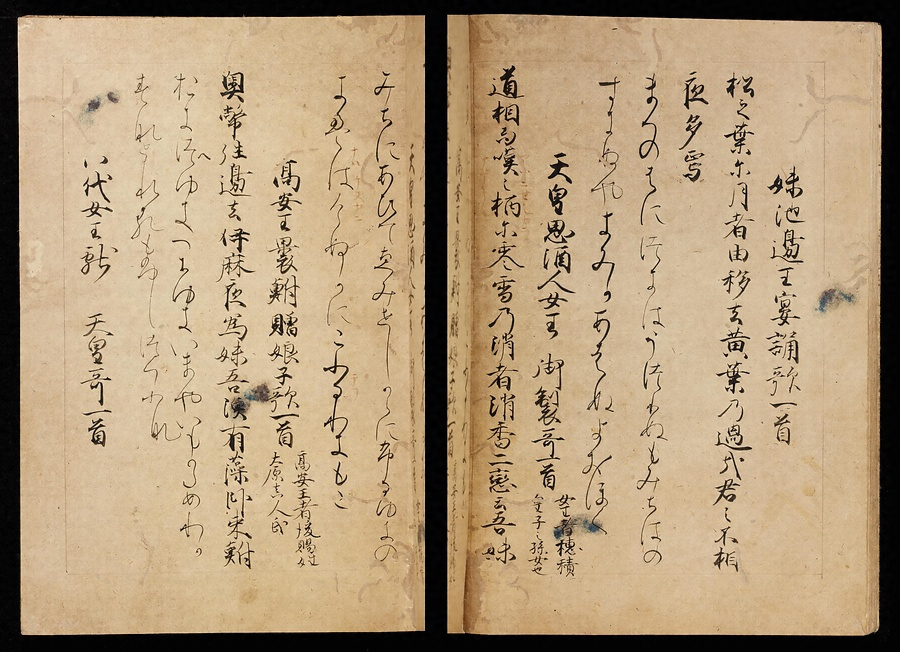 妹池邊王宴誦歌一首
松之葉尓月者由移去黄葉乃過哉君之不相
夜多焉
まつのはにつきはうつりぬもみちはの
すきぬやきみかあはぬよおほく
天皇思酒人女王 御製哥一首
女王者穂積
皇子之孫女也
道相而咲之柄尓零雪乃消者消香二戀云吾妹
みちにあひてゑみせしからにふるゆきの
けなはけぬかにこふるわきもこ
高安王裹鮒贈娘子歌一首
高安王者後賜姓
大原真人氏
奥幣徃邊去伊麻夜為妹吾漁有藻臥束鮒
ゆきいまやいもかためわか
すなとれるもふしつかふな
八代女王獻 天皇哥一首